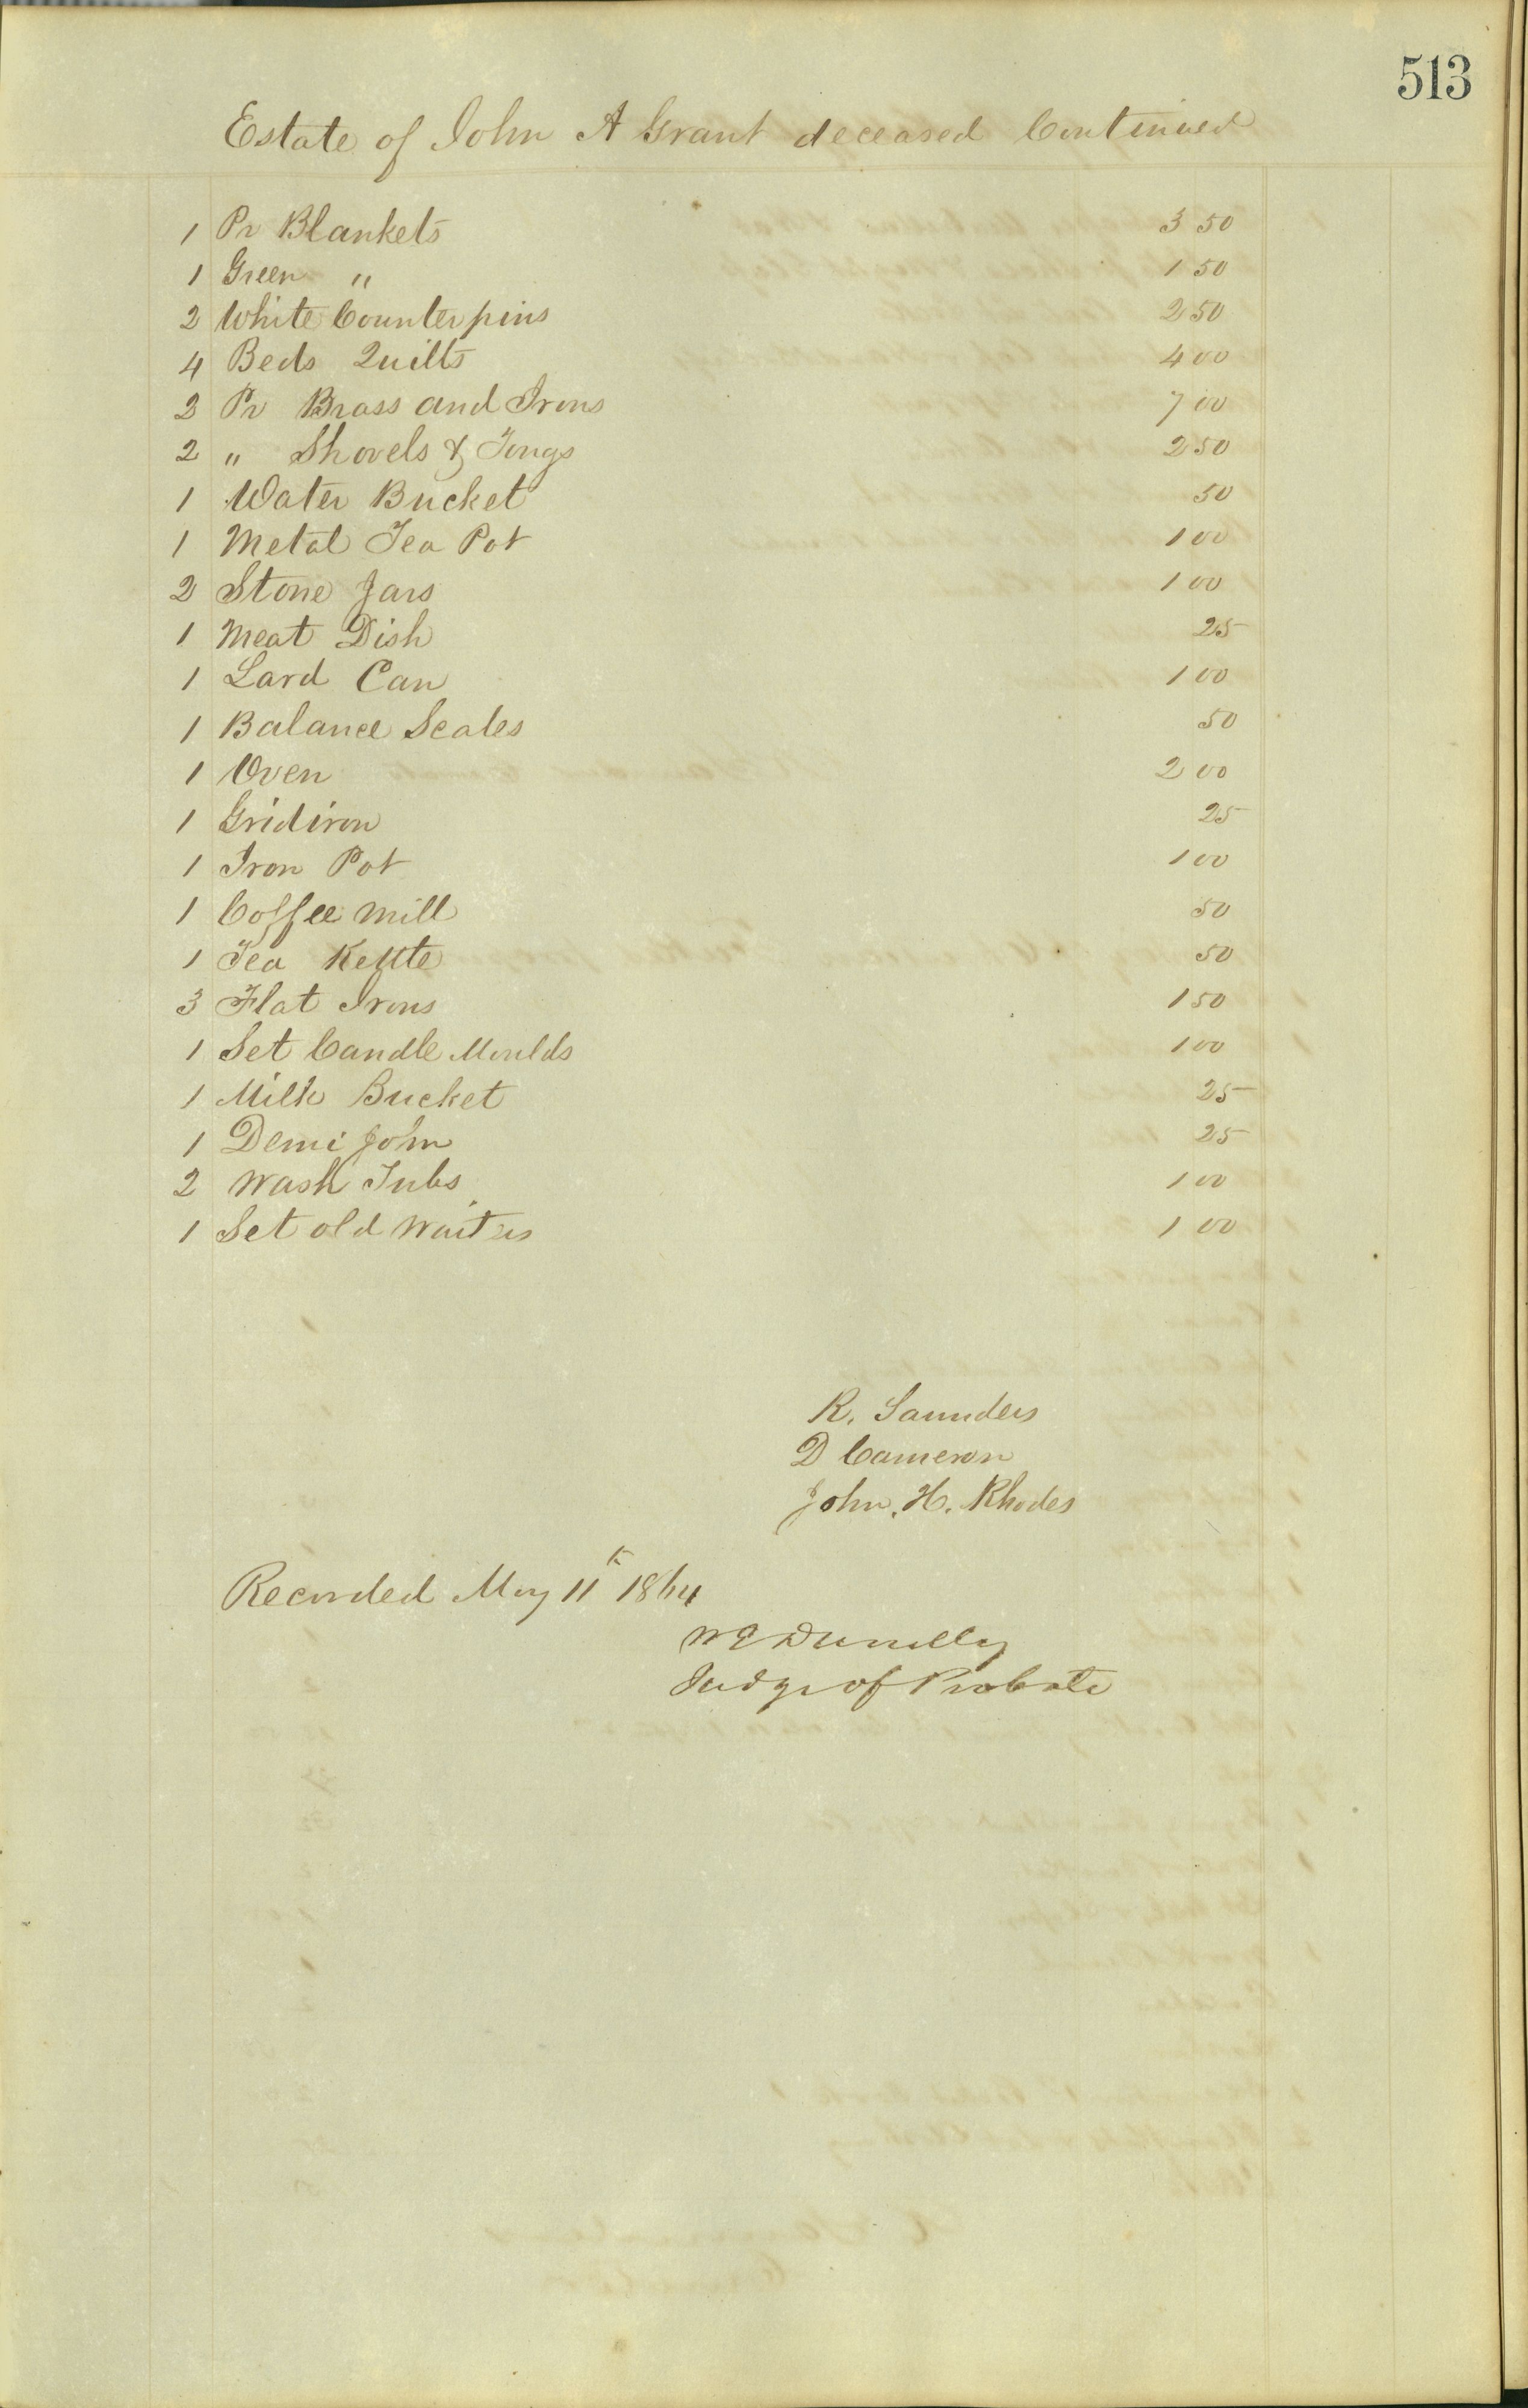 513
Estate of John A Grant deceased Continued
1 Pr Blankets 3 50
1 Green " 1 50
2 White Counterpins 2 50
4 Beds Quilts 4 00
2 Pr Brass and Irons 7 00
2 " Shovels & Tongs 2 50
1 Water Bucket 50
1 Metal Tea Pot 1 00
2 Stone Jars 1 00
1 Meat Dish 25
1 Lard Can 1 00
1 Balance Scales 50
1 Oven 2 00
1 Gridiron 25
1 Iron Pot 1 00
1 Coffee Mill 50
1 Tea Kettle 50
3 Flat Irons 1 50
1 Set Candle Moulds 1 00
1 Milk Bucket 25
1 Demi John 25
2 Wash Tubs 1 00
1 Set old Waiters 1 00
R. Saunders
D Cameron
John. H. Rhodes
Recorded May 11th 1864
Judge of Probate